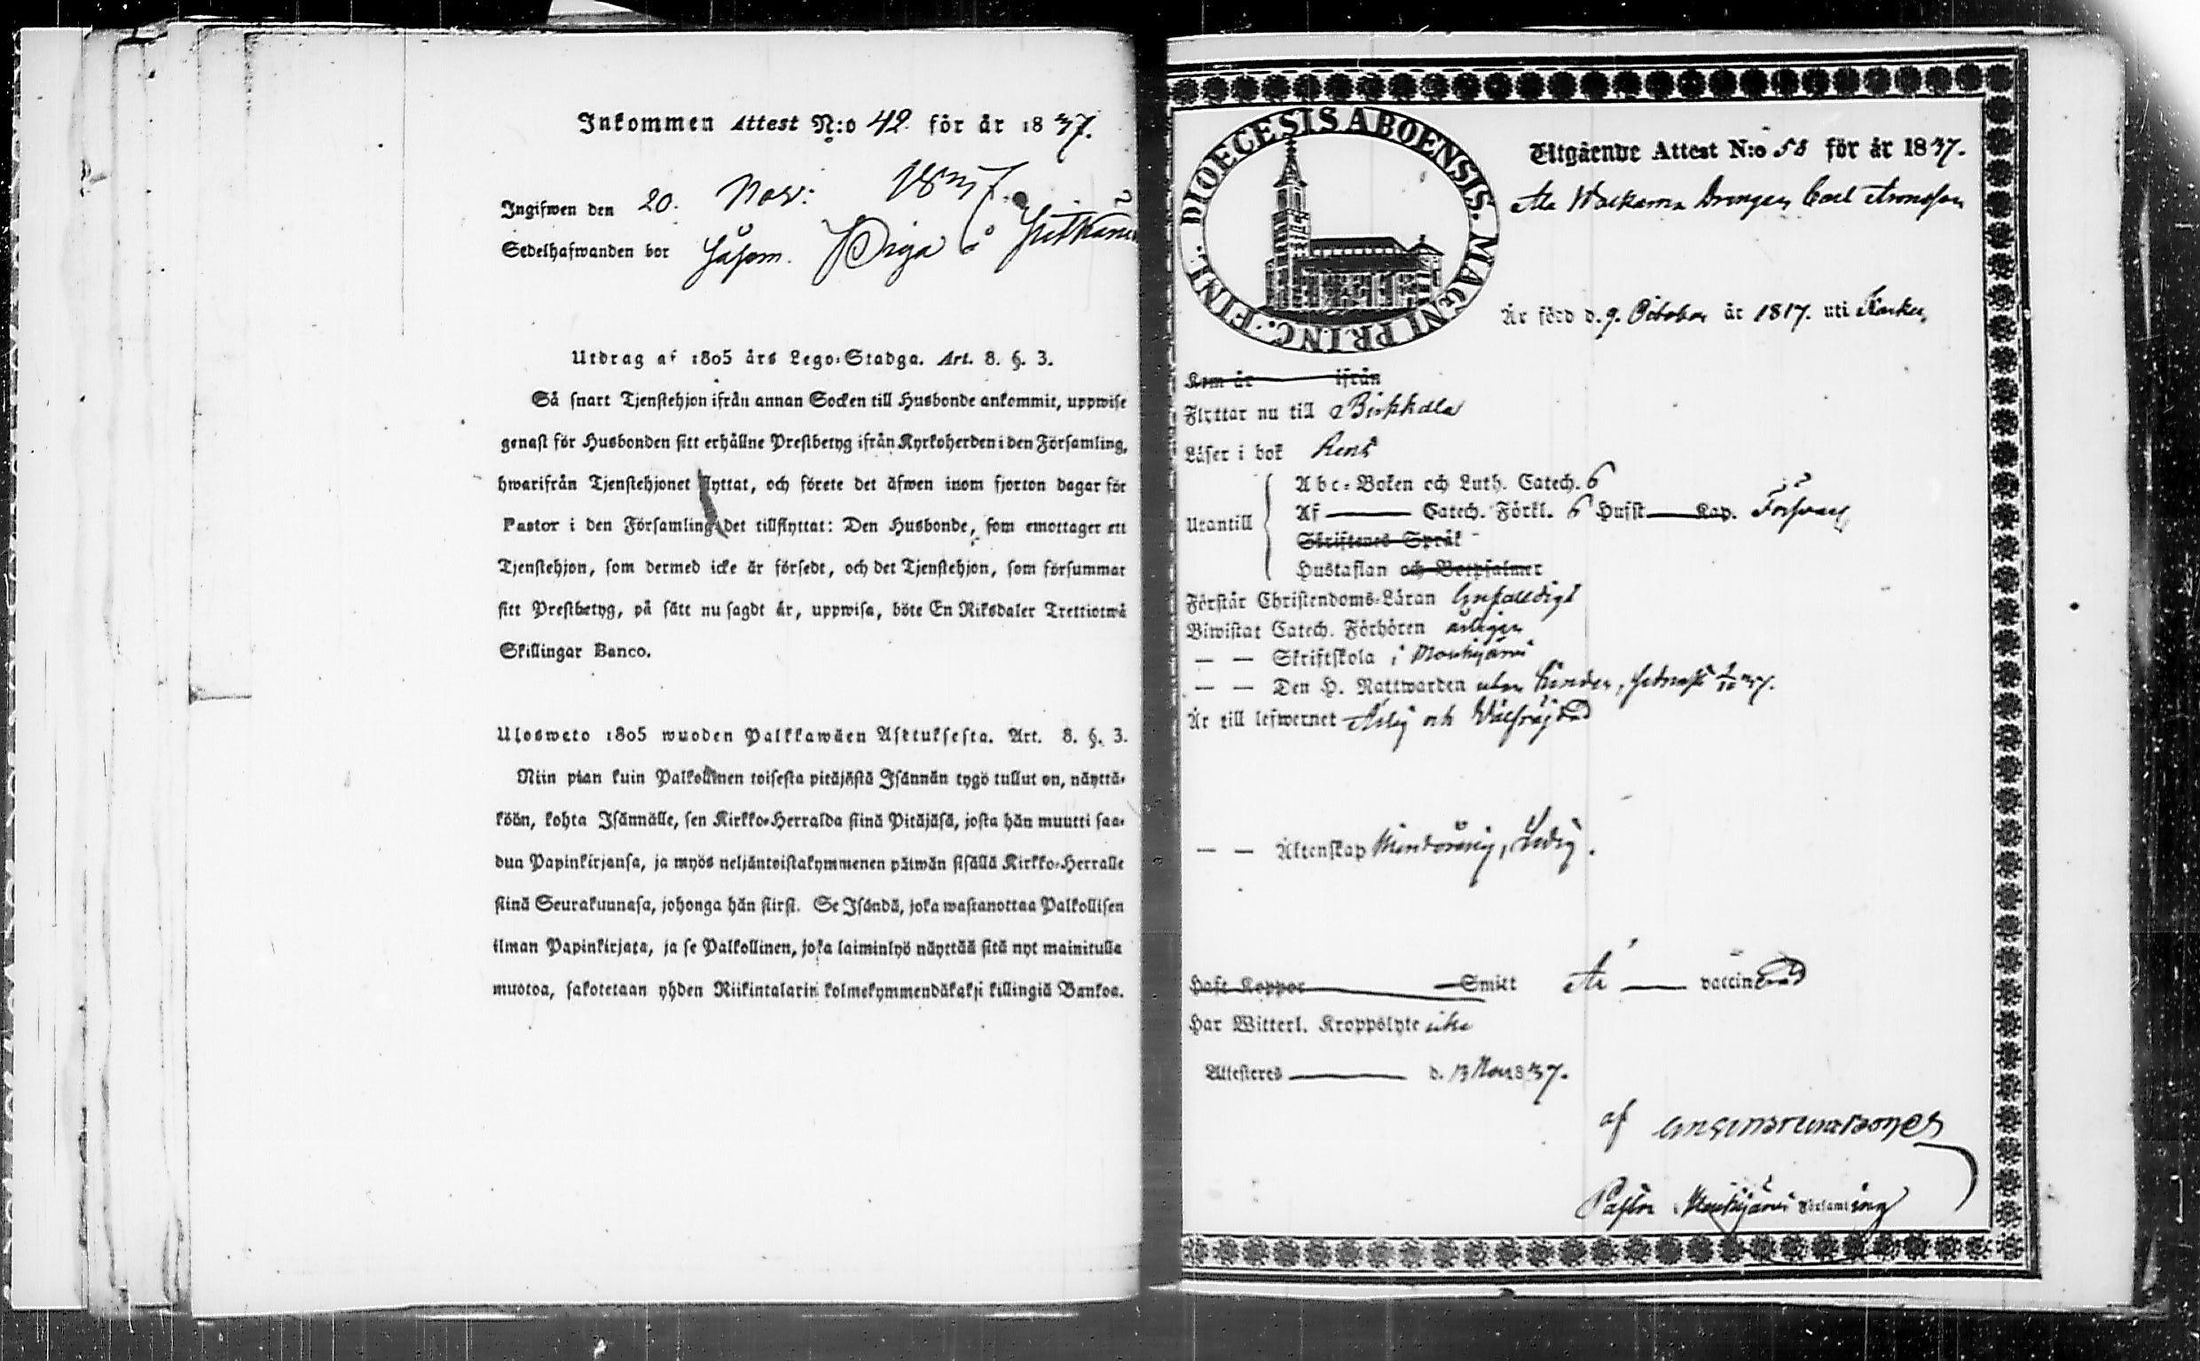 Inkommen Attest N:o 42. för år 1837.
Ingifwen den 20. Nov: 1837.
Sedelhafwanden bor såsom Piga å
Utdrag af 1805 års Lego-Stadga. Art. 8. §. 3.
Så snart Tjenstehjon ifrån annan Socken till Husbonde ankommit, uppwise
genast för Husbonden sitt erhållne Prestbetyg ifrån Kyrkoherden i den Församling,
hwarifrån Tjenstehjonet flyttat, och förete det äfwen inom fjorton dagar för
Pastor i den Församling det tillflyttat: Den Husbonde, som emottager ett
Tjenstehjon, som dermed icke är försedt, och det Tjenstehjon, som försummar
sitt Prestbetyg, på sätt nu sagdt är, uppwisa, böte En Riksdaler Trettiotwå
Skillingar Banco.
Ulosweto 1805 wuoden Palkkawäen Asetuksesta. Art. 8. §. 3.
Niin pian kuin Palkollinen toisesta pitäjästä Isännän tygö tullut on, näyttä-
köön, kohta Isännälle, sen Kirkko-Herralda siinä Pitäjäsä, josta hän muutti saa-
dun Papinkirjansa, ja myös neljäntoistakymmenen päiwän sisällä Kirkko-Herralle
siinä Seurakunnasa, johonga hän siirst. Se Isändä, joka wastanottaa Palkollisen
ilman Papinkirjata, ja se Palkollinen, joka laiminlyö näyttää sitä nyt mainitulla
muotoa, sakotetaan yhden Riikintalarin kolmekymmendäkaksi killingiä Bankoa.
DIOECESIS ABOENSIS. MAGNI PRINC. FINL.
Utgående Attest N:o 58 för år 1837.
Drengen Carl
Är född d. 9. October år 1817. uti Karku,
Kom år ifrån
Flyttar nu till Birkkala
Läser i bok Rent
Utantill
Abc-Boken och Luth. Catech. 6
Af Catech. Förkl. 6 Hufst Kap. Försvar
Skriftenes Språk
Hustaflan och Botpsalmer
Förstår Christendoms-Läran Enfaldigt
Biwistat Catech. Förhören årligen
— — Skriftskola i Mouhijärvi
— — Den H. Nattwarden utan hinder, senast 1/10 37.
Är till lefwernet Ärlig och Wälfräjdad
— — Äktenskap Minderårig, Ledig.
Haft Koppor Smitt Är vaccinerad
Har Witterl. Kroppslyte icke
Attesteras d. 13 Nov. 1837.
af
Pastor i Mouhijärvi Församling